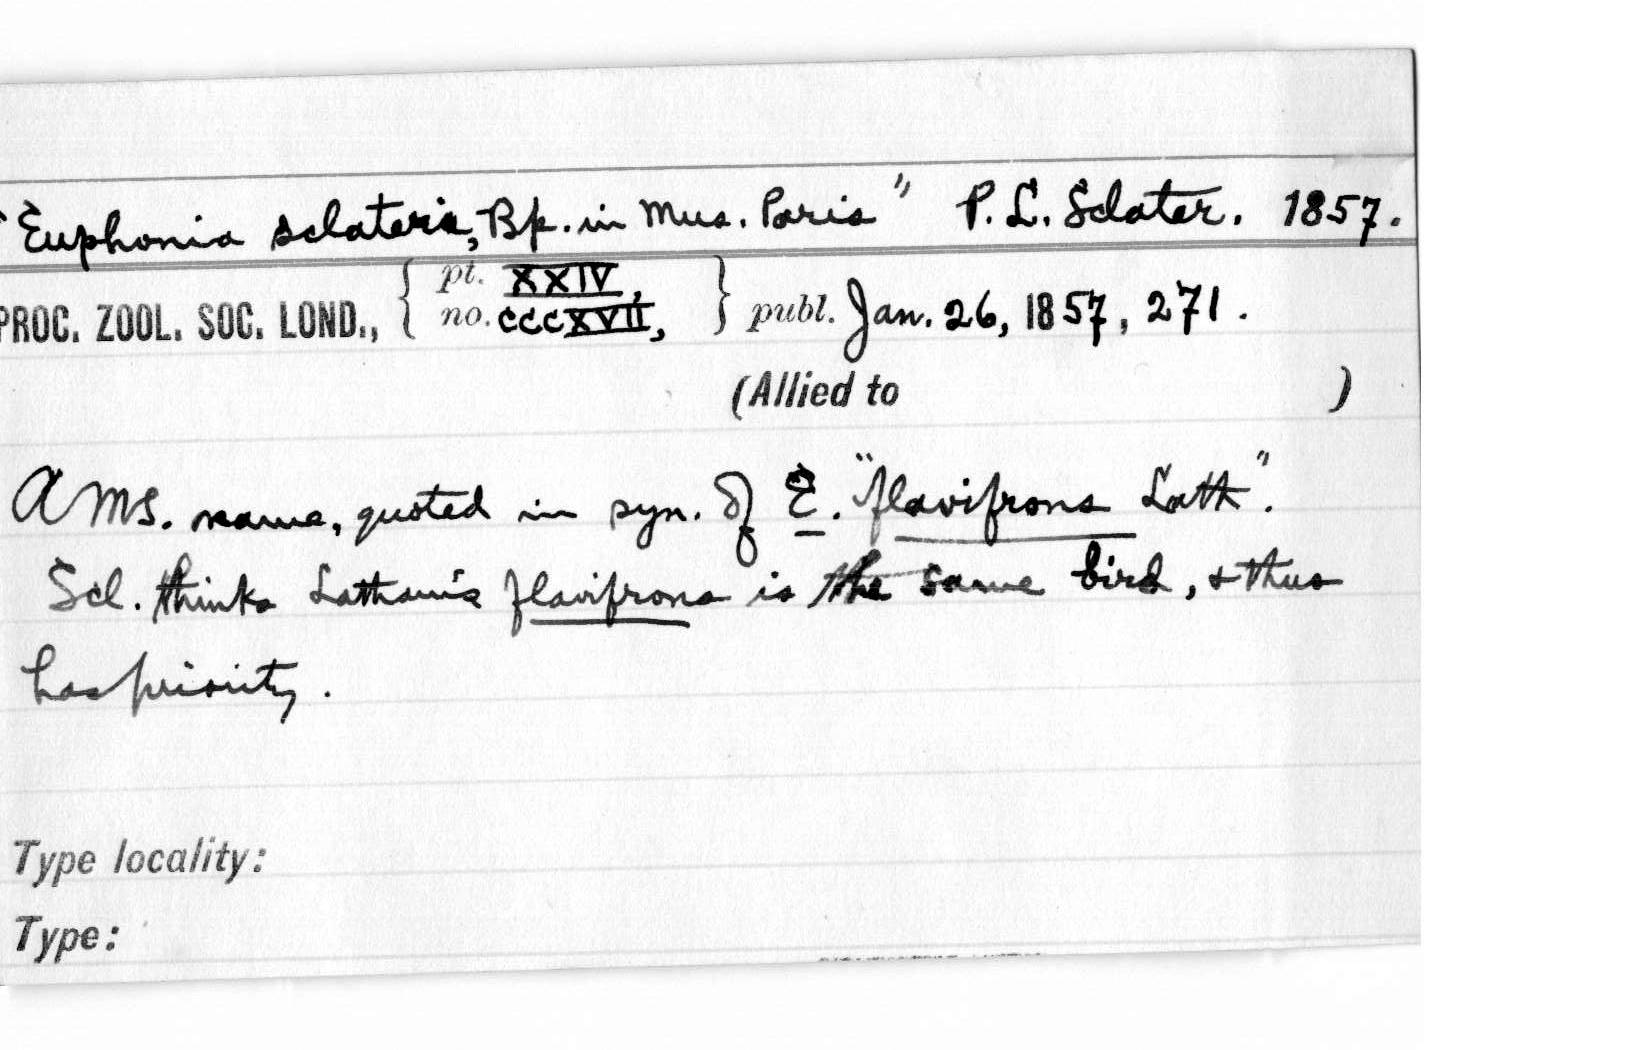 "Euphonia sclateri, Bp. in Mus. Paris" P. L. Sclater. 1857.
PROC. ZOOL. SOC. LOND., { pt. XXIV, no. CCCXVII, } publ. Jan. 26, 1857, 271.
(Allied to )
A MS. name, quoted in syn. of E. "flavifrons Lath".
Scl. thinks Latham's flavifrons is the same bird, & thus
has priority.
Type locality:
Type: